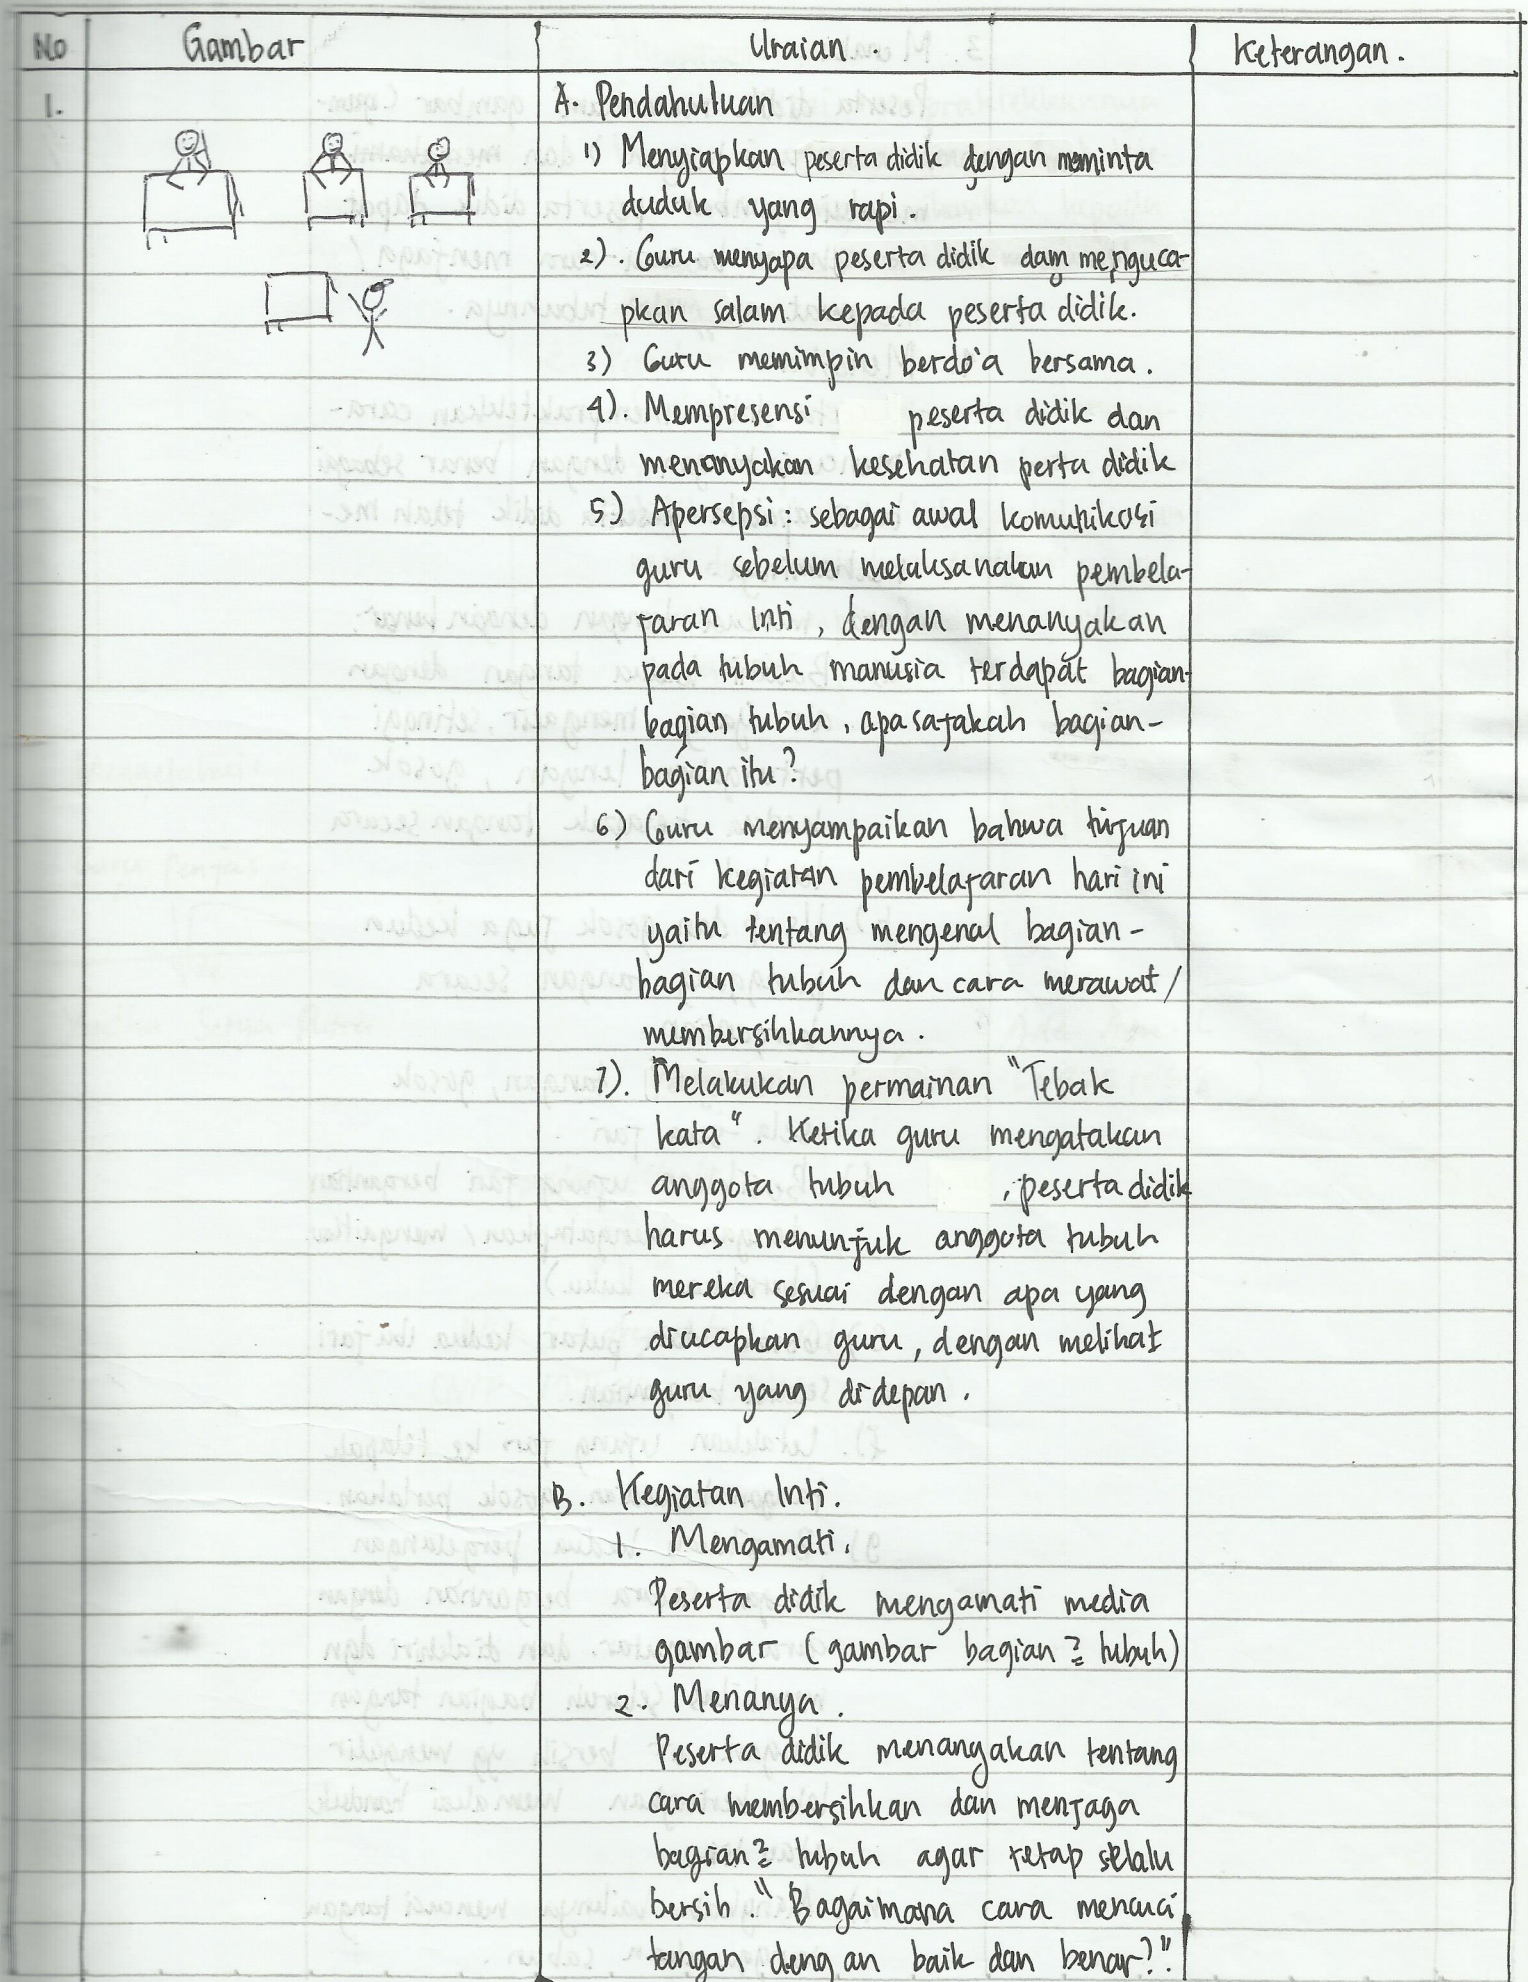 No Gambar Uraian. Keterangan.
1.
A. Pendahuluan
1) Menyiapkan peserta didik dengan meminta
duduk yang rapi.
2). Guru menyapa peserta didik dam menguca-
pkan salam kepada peserta didik.
3) Guru memimpin berdo'a bersama.
4). Mempresensi peserta didik dan
menanyakan kesehatan perta didik
5) Apersepsi: sebagai awal komunikasi
guru sebelum melaksanakan pembela-
jaran Inti, dengan menanyakan
pada tubuh manusia terdapat bagian-
bagian tubuh, apa sajakah bagian-
bagian itu?
6) Guru menyampaikan bahwa tujuan
dari kegiatan pembelajaran hari ini
yaitu tentang mengenal bagian-
bagian tubuh dan cara merawat/
membersihkannya.
7). Melakukan permainan "Tebak
kata". Ketika guru mengatakan
anggota tubuh , peserta didik
harus menunjuk anggota tubuh
mereka sesuai dengan apa yang
diucapkan guru, dengan melihat
guru yang didepan.
B. Kegiatan Inti.
1. Mengamati.
Peserta didik mengamati media
gambar (gambar bagian2 tubuh)
2. Menanya.
Peserta didik menanyakan tentang
cara membersihkan dan menjaga
bagian2 tubuh agar tetap selalu
bersih. "Bagaimana cara mencuci
tangan dengan baik dan benar?".